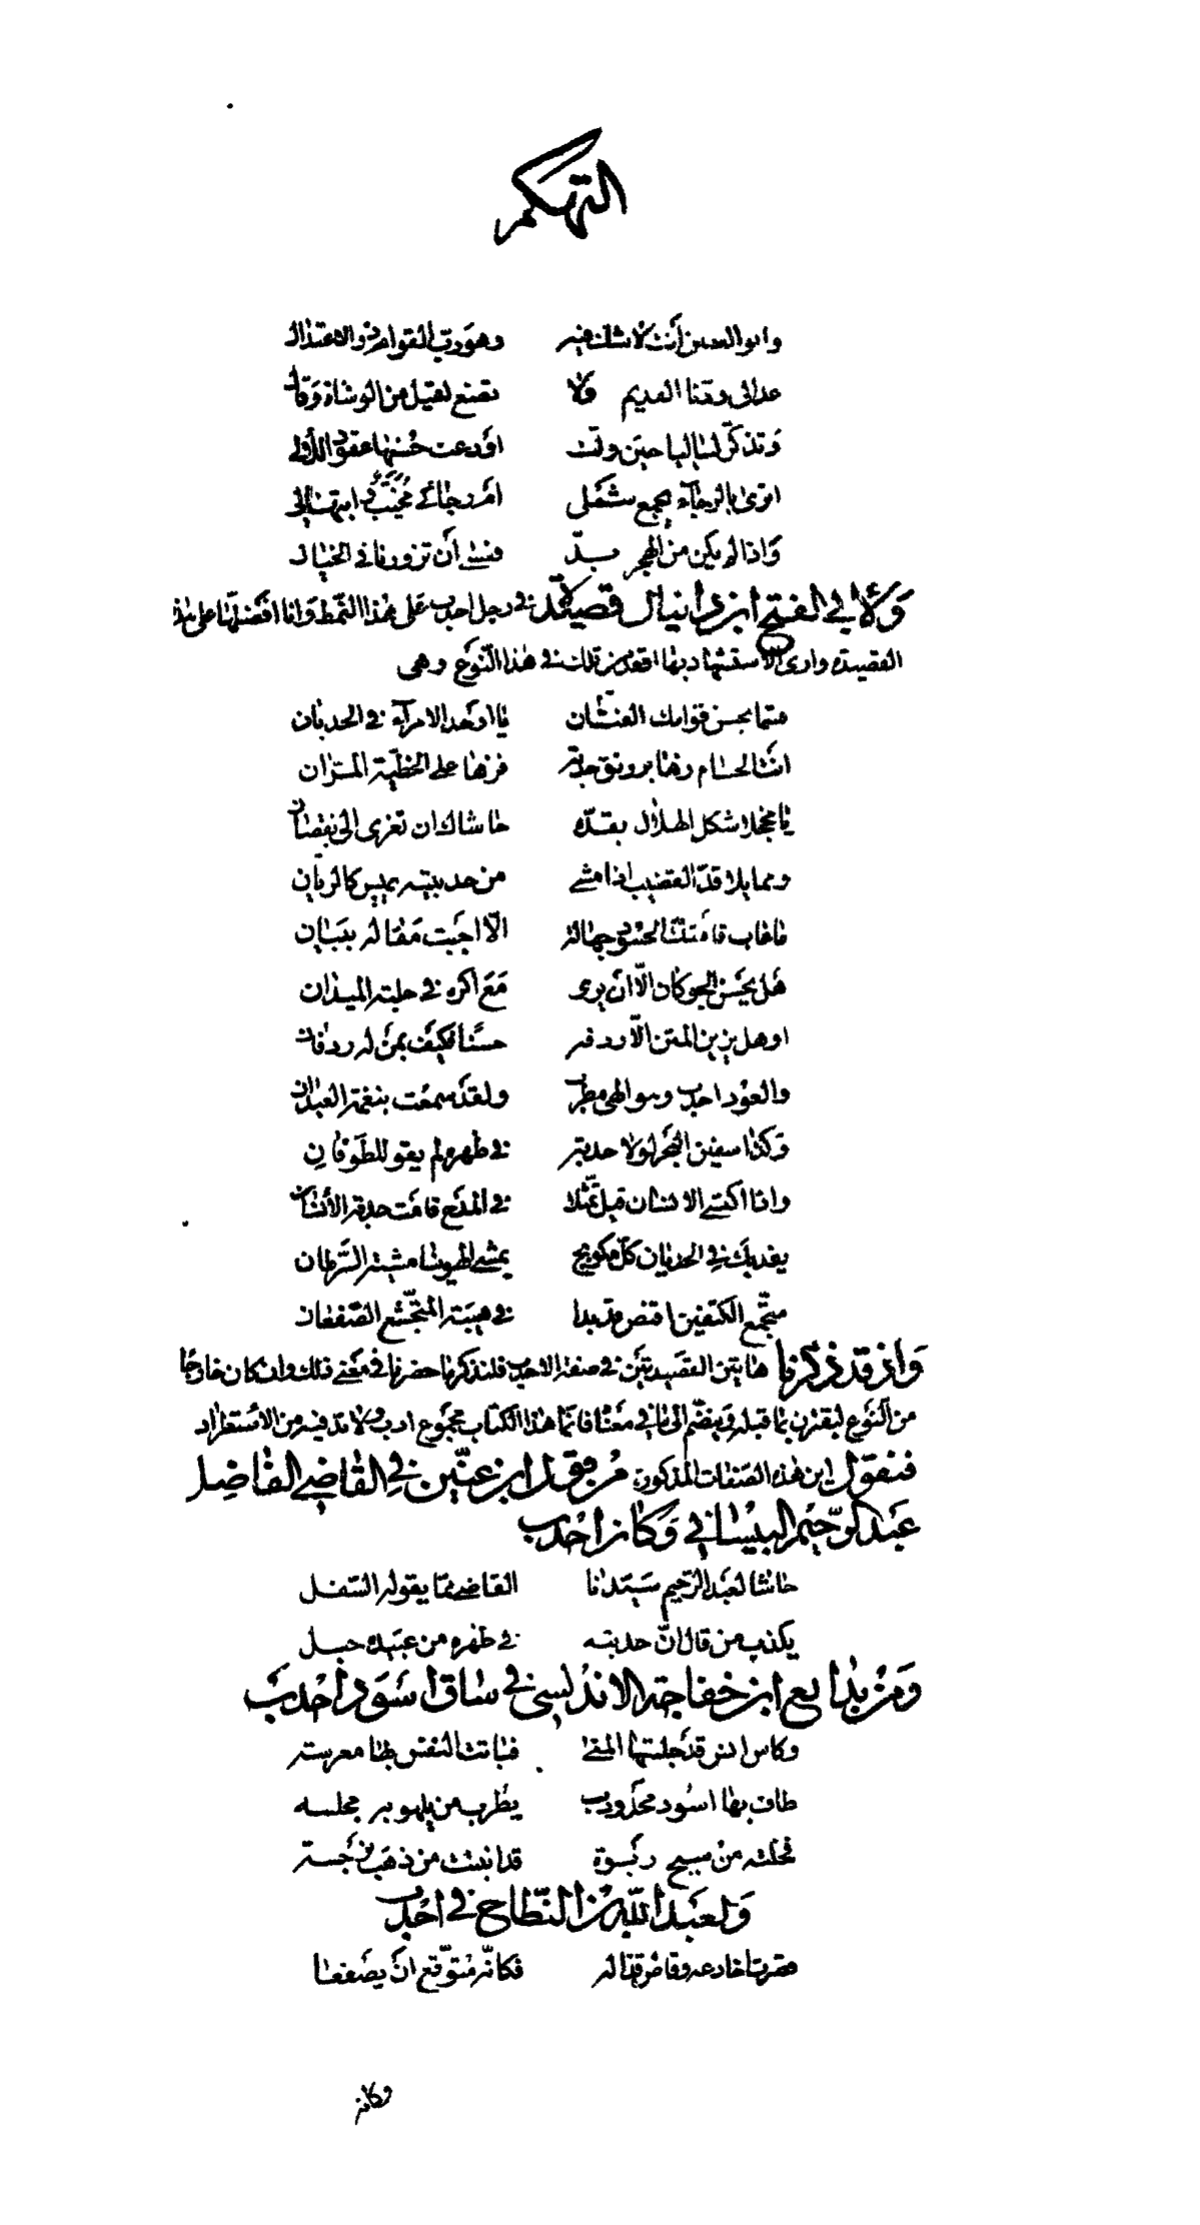 التهكم
وابو الحسن أنت لا شك فيه وهو رب القوام ذو الاعتدال
عد الى ودنا القديم ولا تصغ لقيل من الوشاة وقال
وتذكر لياليا حين ولت اودعت حسنها عقود اللآلى
اترى بالرجاء يجمع شملى ام رجائى مخيب في ابتهالى
واذا لم يكن من الهجر بد فعسى أن تزورنا فى الخيال
ولأبي الفتح ابن دانيال قصيدة فى رجل احدب على هذا النمط وانا افضلها على تلك
القصيدة وارى الاستشهاد بها اقعد من تلك فى هذا النوع وهى
قسما بحسن قوامك الفتان يا اوحد الامراء فى الحدبان
انت الحسام زها برونق حده فزها على الخطية المران
يا مخجلا شكل الهلال بقده حاشاك ان تعزى الى نقصان
ومماثلا قد القضيب اذا مشى من حدبتيه يميس كالريان
ما عاب قامتك الحسود جهالة الا اجبت مقاله ببيان
هل يحسن الجوكان الا ان يرى مع اكرة فى حلبة الميدان
او هل يزين المتن الا ردفه حسنا فكيف بمن له ردفان
والعود احدب وهو الهى مطرب ولقد سمعت بنغمة العيدان
وكذا سفين البحر لولا حدبة فى ظهره لم يقو للطوفان
واذا اكتسى الانسان قيل تمثلا فى المدح قامت حدبة الانسان
يفديك فى الحدبان كل مكوبج يمشى الهوينا مشية السرطان
متجمع الكتفين اقنص قد بدا فى هيئة المتخشع الصفعان
واذ قد ذكرنا هاتين القصيدتين فى صفة الاحدب فلنذكر ما حضرنا فى معنى ذلك وان كان خارجا
من النوع ليقترن بما قبله وينضم الى ما فى معناه فانما هذا الكتاب مجموع ادب ولا بد فيه من الاستطراد
فنقول ان هذه الصفات المذكورة من قول ابن عنين في القاضي الفاضل
عبد الرحيم البيساني وكان احدب
حاشا لعبد الرحيم سيدنا القاضى مما يقوله السفل
يكذب من قال ان حدبته فى ظهره من عبيده حبل
ومن بدايع ابن خفاجة الاندلسي في ساق اسود احدب
وكاس انس قد جلتها المنى فباتت النفس بها معرسه
طاف بها اسود محدودب يطرب من يلهو به مجلسه
فخلته من سبج ربوة قد انبتت من ذهب نرجسه
ولعبد الله بن النطاح في احدب
قصرت اخادعه وغاص قذاله فكانه متوقع ان يصفعا
وكانه